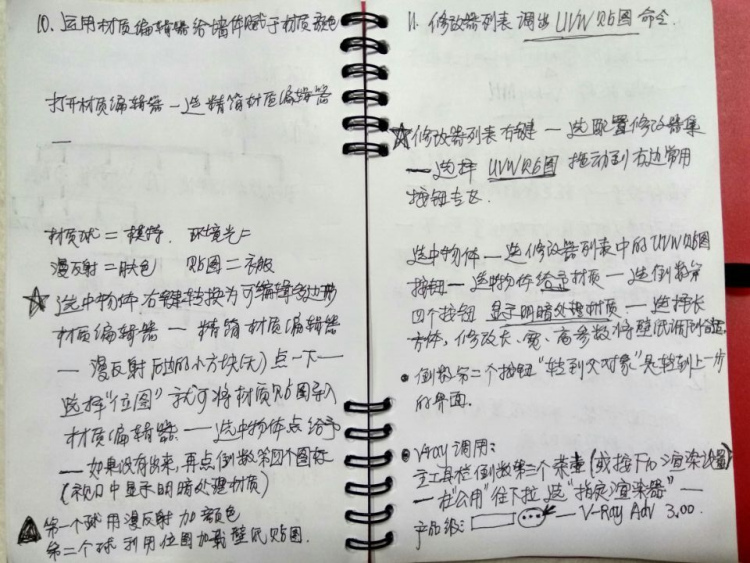 10. 运用材质编辑器给墙体赋于材质颜色
打开材质编辑器 — 选精简材质编辑器
—
材质球 = 模特. 环境光 =
漫反射 = 肤色 贴图 = 衣服
☆ 选中物体右键转换为可编辑多边形
材质编辑器 — 精简材质编辑器
— 漫反射后边的小方块(无)点一下 —
选择"位图"就可将材质贴图导入
材质编辑器 — 选中物体点给予
— 如果没有出来,再点倒数第四个图标
(视口中显示明暗处理材质)
第一个球用漫反射加颜色
第二个球利用位图加载壁纸贴图.
11. 修改器列表调出 UVW贴图 命令.
☆ 修改器列表右键 — 选配置修改器集
— 选择 UVW贴图 拖动到右边常用
按钮专区.
选中物体 — 选修改器列表中的UVW贴图
按钮 — 选物体给予材质 — 选倒数第
四个按钮 显示明暗处理材质. — 选择长
方体, 修改长、宽、高参数将壁纸调到合适.
• 倒数第二个按钮"转到父对象"是转到上一步
的界面.
• V-ray 调用:
主工具栏倒数第三个茶壶(或按F10渲染设置)
— 在"公用"往下拉选"指定渲染器" —
产品级: — V-Ray Adv 3.00.